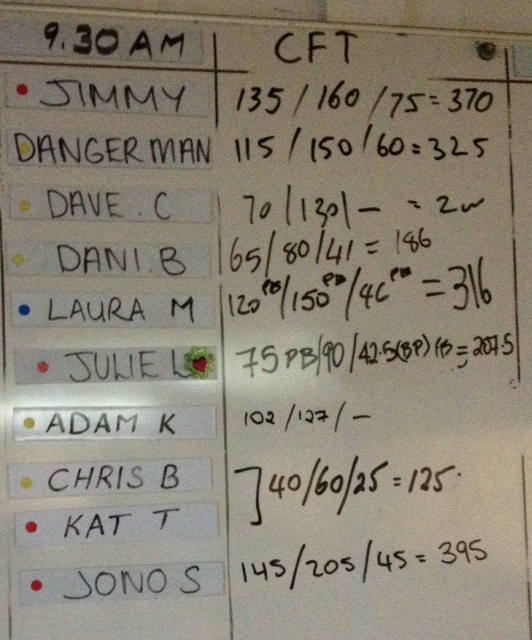 9.30 AM CFT
JIMMY 135/160/75=370
DANGERMAN 115/150/60=325
DAVE.C 70/130/– = 200
DANI.B 65/80/41 = 186
LAURA M 120PB/150PB/46PB = 316
JULIE L 75PB/90/42.5(BP)PB=207.5
ADAM K 102/127/–
CHRIS B ]40/60/25=125.
KAT T
JONO S 145/205/45=395